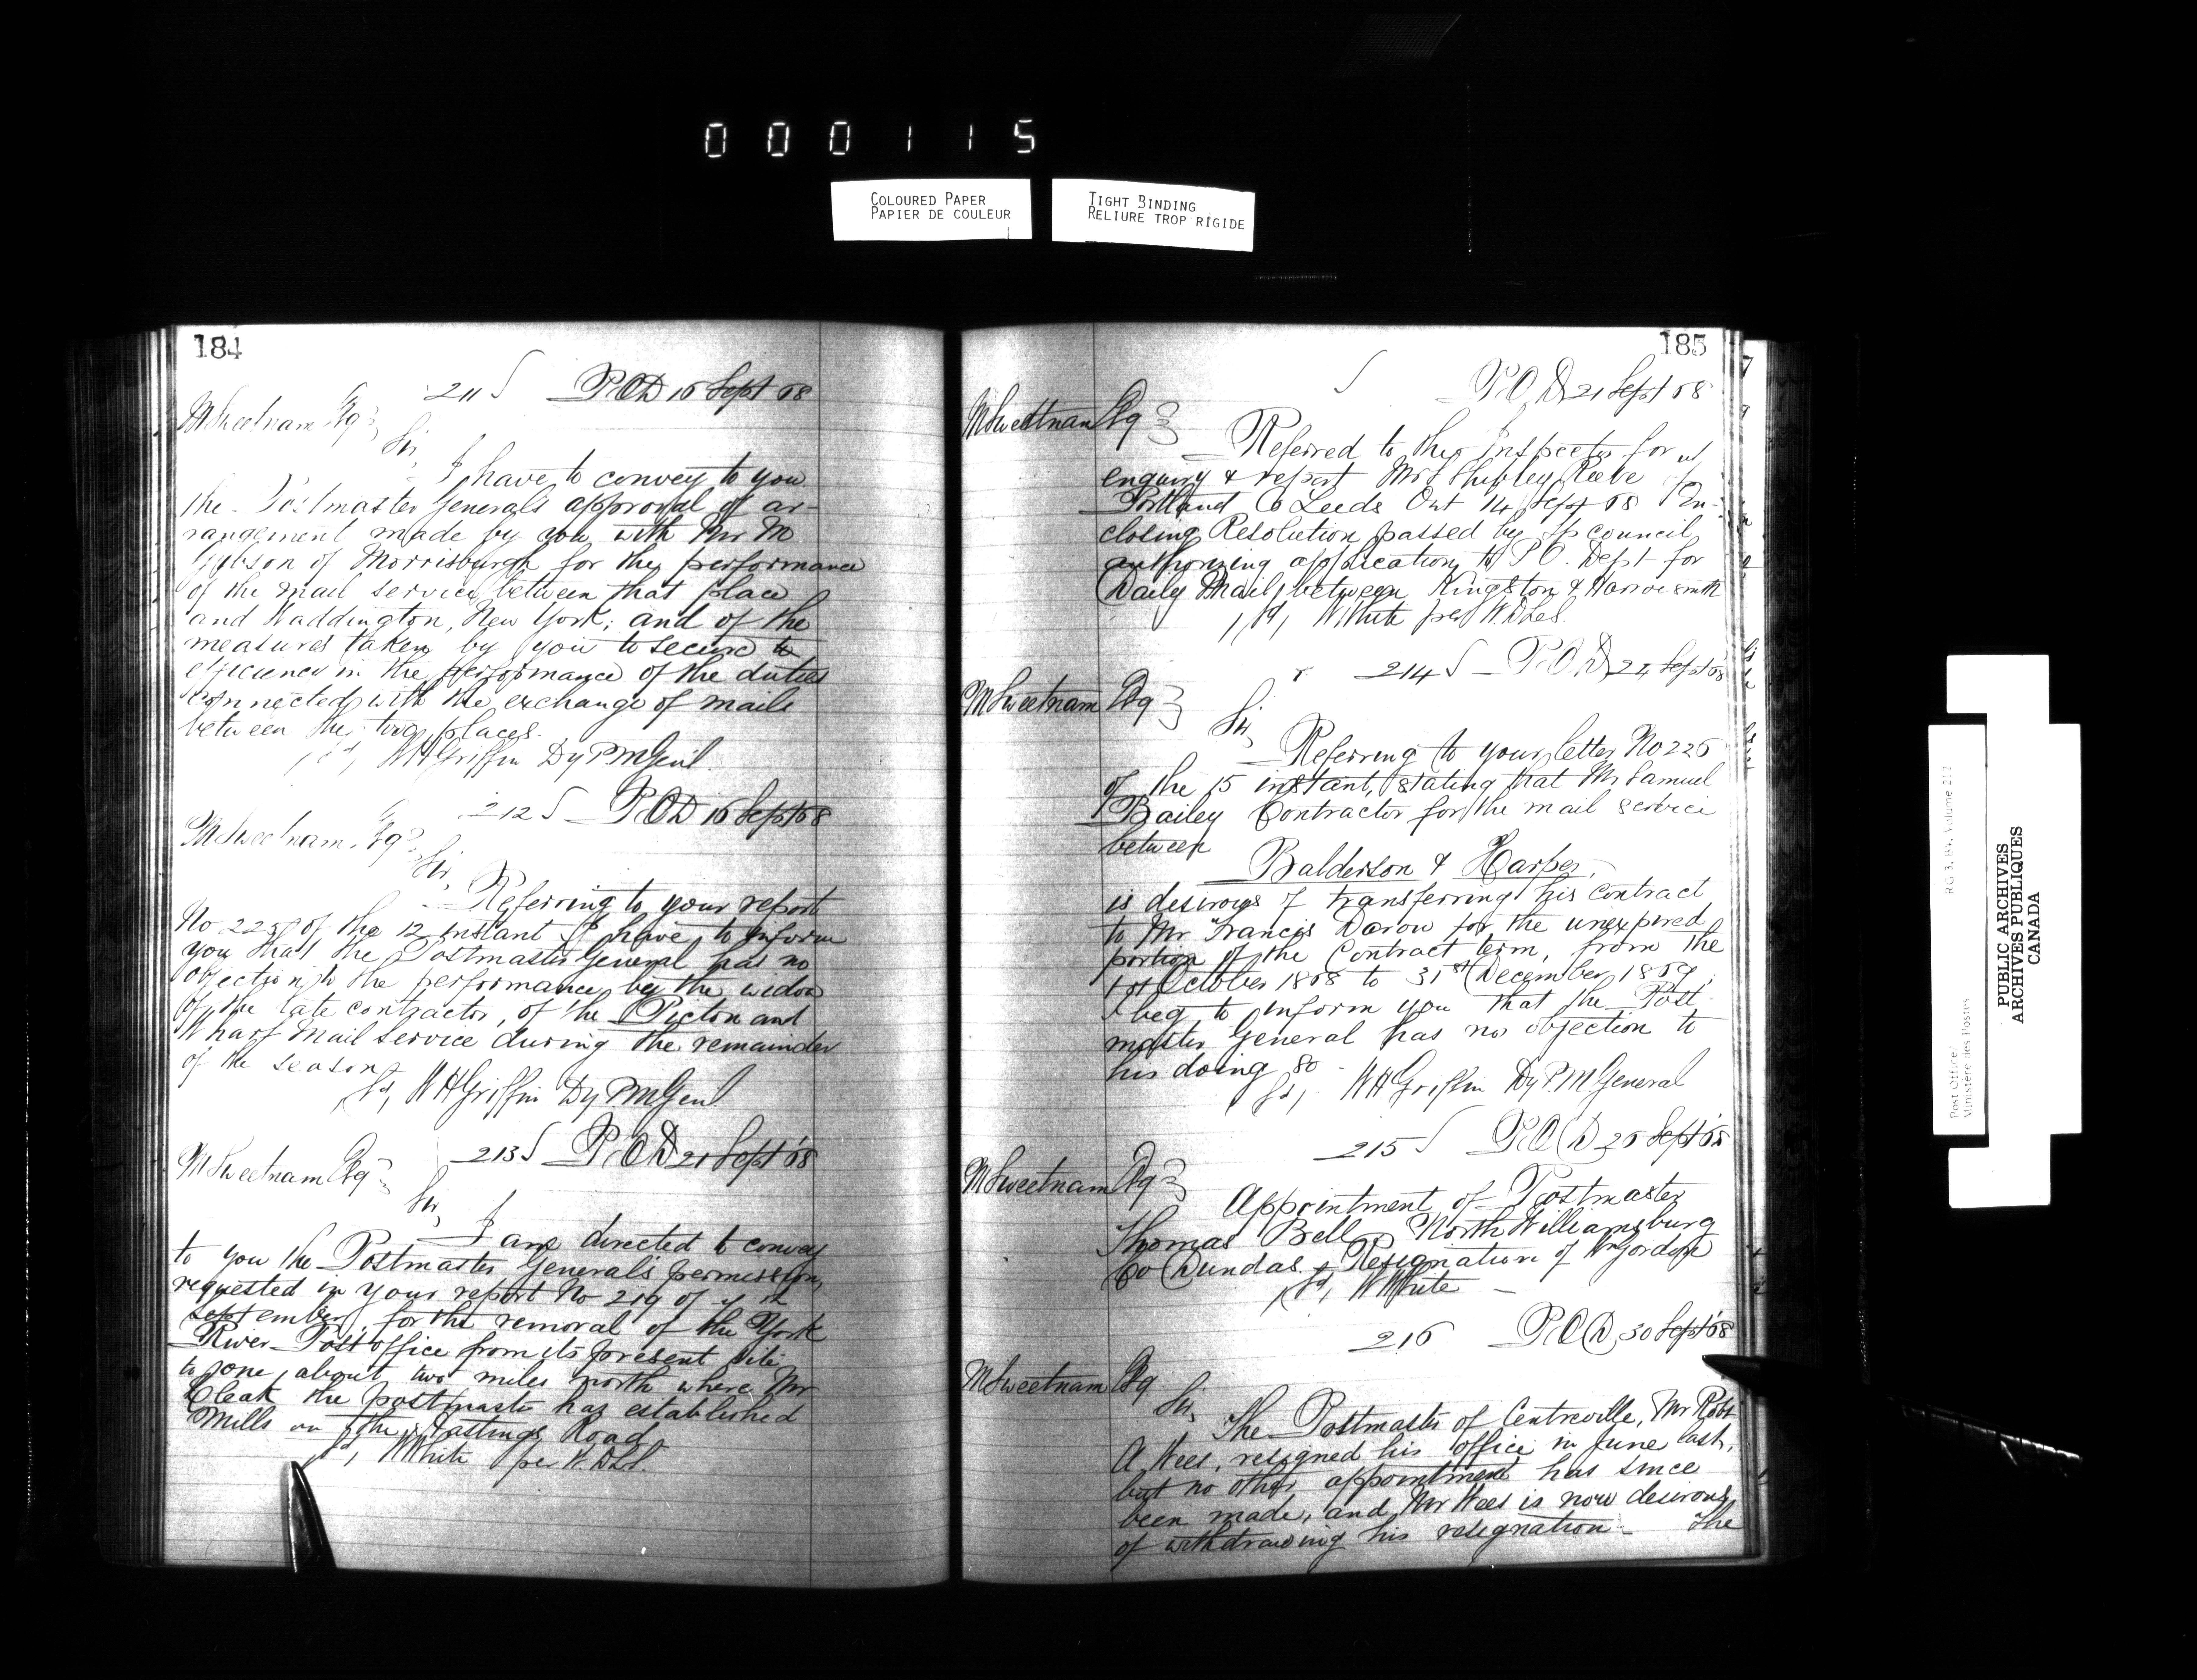 000115
COLOURED PAPER
PAPIER DE COULEUR
TIGHT BINDING
RELIURE TROP RIGIDE
184
211 P.O.D 16 Sept 68
M Sweetnam Esq
Sir,
I have to convey to you
the Postmaster Generals approval of ar-
rangement made by you with Mr M
of Morrisburgh for the performance
of the mail service between that place
and Waddington, New York; and of the
measures taken by you to secure to
efficiency in the performance of the duties
connected with the exchange of mails
between the two places.
W H Griffin Dy P M Genl.
212 P.O.D 16 Sept 68
M Sweetnam Esq
Sir,
Referring to your report
No of the 12 instant I have to inform
you that the Postmaster General has no
objection to the performance by the widow
of the late contractor, of the Picton and
Wharf Mail Service during the remainder
of the season
sd, W H Griffin Dy P M Genl
213 P.O.D 21 Sept 68
M Sweetnam Esq
Sir,
I am directed to convey
to you the Postmaster General's permission,
requested in your report No 219 of
September, for the removal of the York
River Post office from its present site
to one about two miles north where Mr
Cleak the postmaster has established
Mills on the Hastings Road
sd, W White per W.D.LeS.
185
P.O.D 21 Sept 68
M Sweetnam Esq
Referred to the Inspector for
enquiry & report Mr Shipley Reeve
Portland Co Leeds Ont 14 Sept 68 En-
closing Resolution passed by Tp council
authorizing application to P.O. Dept for
Daily Mail between Kingston & Harrowsmith
sd, W White per W D LeS.
214 P.O.D 24 Sept 68
M Sweetnam Esq
Sir,
Referring to your letter No 226
of the 15 instant, stating that Mr Samuel
Bailey Contractor for the mail service
between
Balderson & Harper,
is desirous of transferring his contract
to Mr Francis Doran for the unexpired
portion of the Contract term, from the
1st October 1868 to 31st December 1869,
I beg to inform you that the Post
master General has no objection to
his doing so
sd, W H Griffin Dy P.M General
215 P.O.D 26 Sept 68
M Sweetnam Esq
Appointment of Postmaster
Thomas Bell North Williamsburg
Co Dundas. Resignation of W Gordon
sd, W White
216 P.O.D 30 Sept 68
M Sweetnam Esq
Sir,
The Postmaster of Centreville, Mr Robt
A Wees, resigned his office in June last,
but no other appointment has since
been made, and Mr Wees is now desirous
of withdrawing his resignation - The
Post Office/
Ministère des Postes
RG 3, B4, Volume 212
PUBLIC ARCHIVES
ARCHIVES PUBLIQUES
CANADA